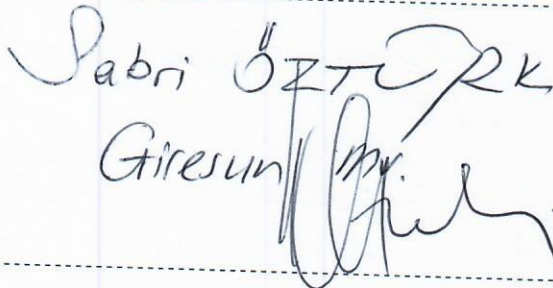 Sabri ÖZTÜRK
Giresun